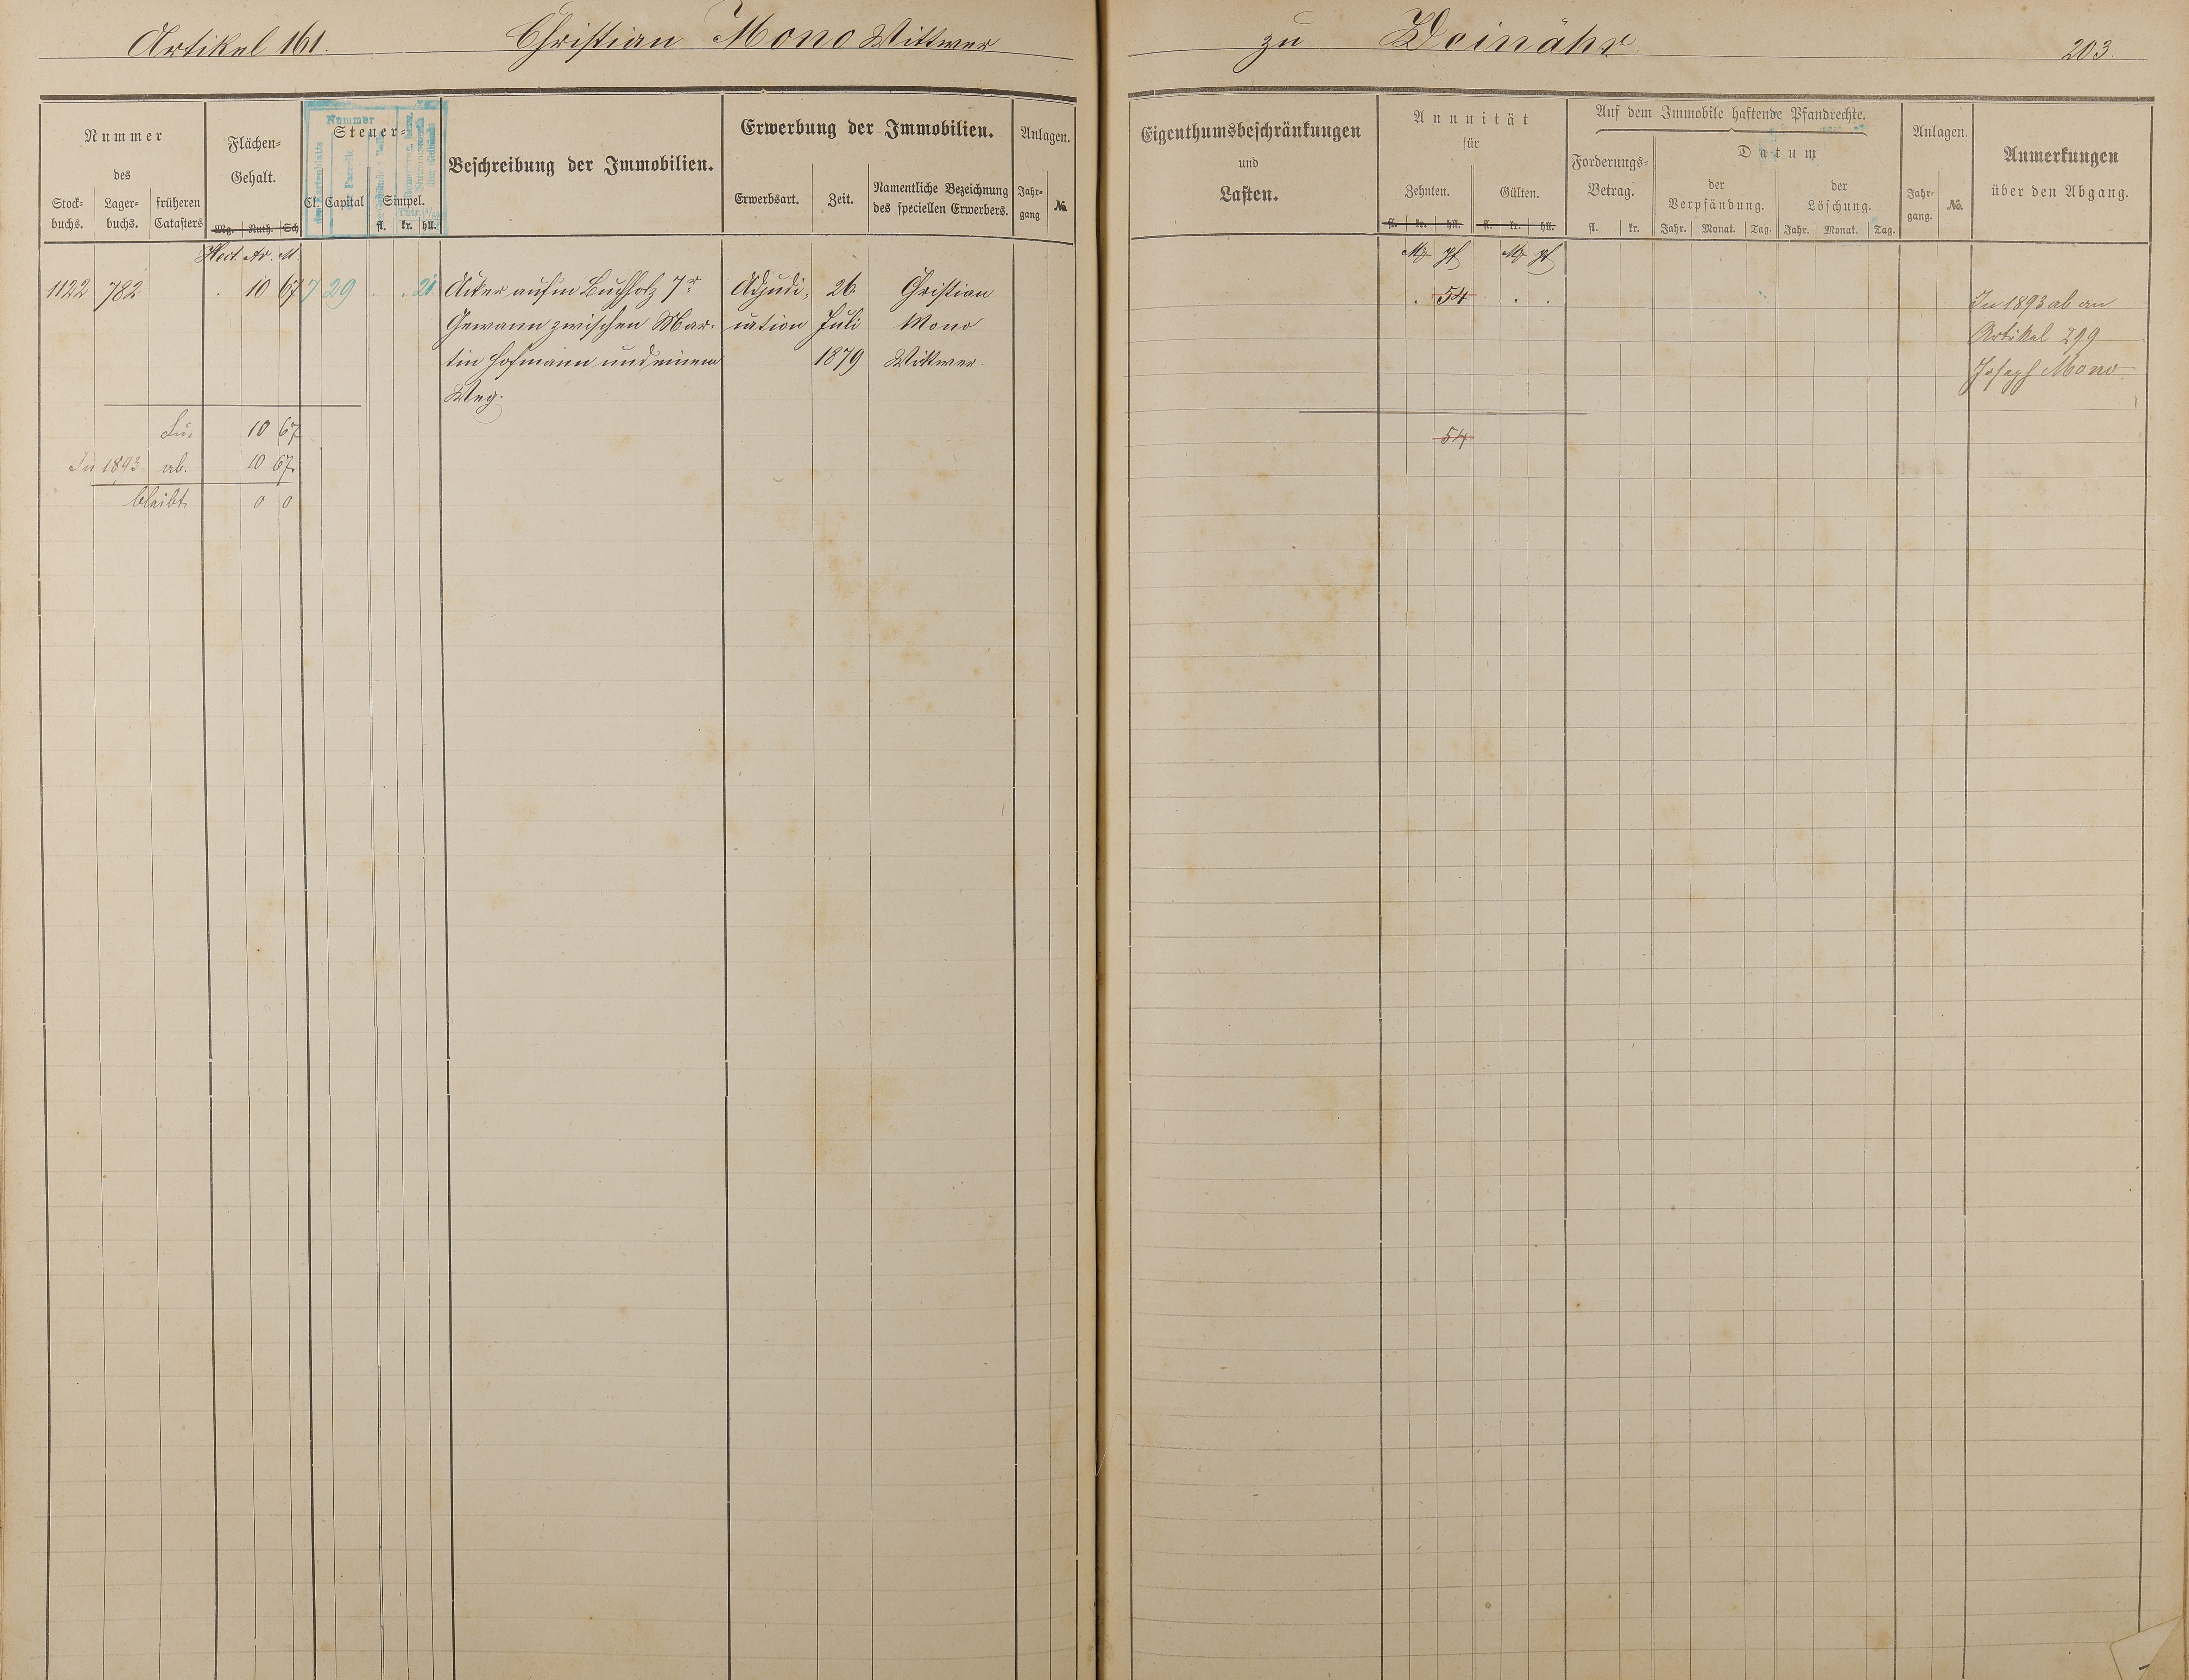 Artikel 161. Christian Mono Wittwer zu Weinähr. 203.
Nummer
des
Stock-
buchs.
Lager-
buchs.
früheren
Catasters
Flächen-
Gehalt.
Mg. Ruth. Sch
Nummer
Steuer-
des Kartenblatts
Parcelle
Cl. Capital Simpel.
fl. kr. hll.
Beschreibung der Immobilien.
Erwerbung der Immobilien.
Erwerbsart. Zeit.
Namentliche Bezeichnung
des speciellen Erwerbers.
Anlagen.
Jahr-
gang
No.
Eigenthumsbeschränkungen
und
Lasten.
Annuität
für
Zehnten. Gülten.
fl. kr. hll. fl. kr. hll.
Auf dem Immobile haftende Pfandrechte.
Forderungs-
Betrag.
fl. kr.
Datum
der
Verpfändung.
Jahr. Monat. Tag.
der
Löschung.
Jahr. Monat. Tag.
Anlagen.
Jahr-
gang.
No.
Anmerkungen
über den Abgang.
Hect. Ar. M. Mg pf Mg pf
1122 782 . 10 67 7 29 . . 21 Acker aufm Buchholz 7r Adjudi- 26. Christian . 54 . . In 1893 ab an
Gewann zwischen Mar- cation Juli Mono Artikel 299
tin Hofmann und einem 1879 Wittwer. Joseph Mono.
Weg.
Su. 10 67 54
In 1893 ab. 10 67.
bleibt 0 0